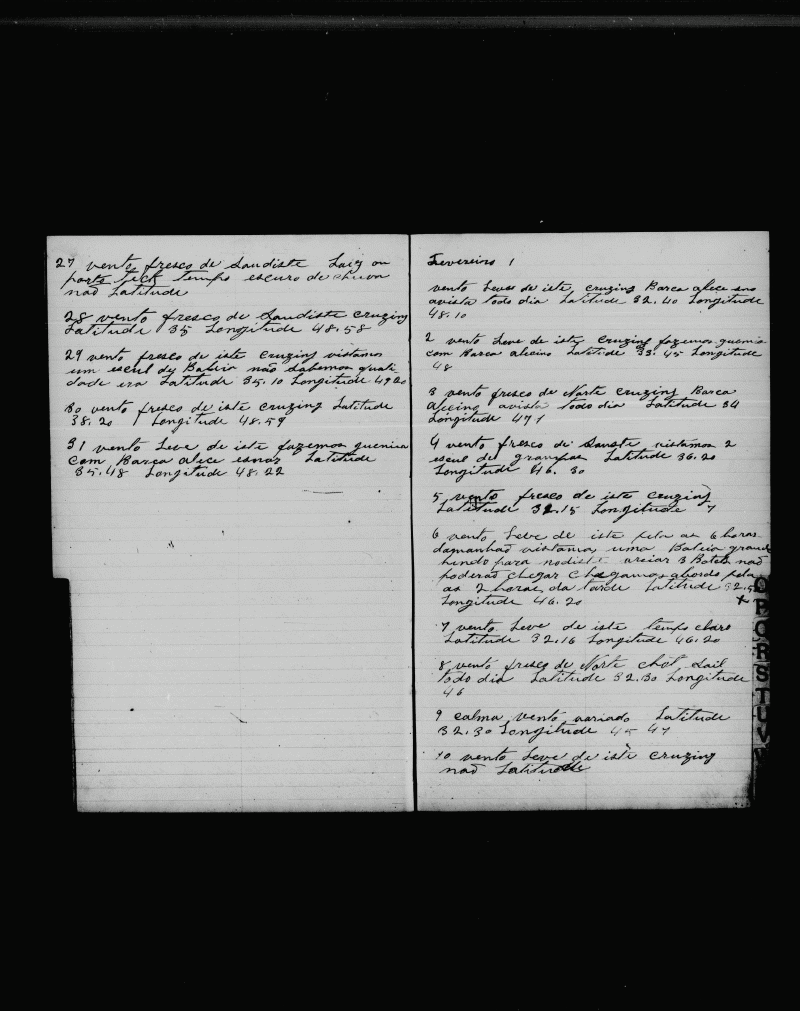 27 vento fresco de Saudiste Laig on
port Teck tempo escuro de chuva
não Latitude
28 vento fresco de Saudiste cruzing
Latitude 35 Longitude 48.58
29 vento fresco de iste cruzing vistamos
um escul de Baliia não sabemos quali
dade era Latitude 35.10 Longitude 49 20
30 vento fresco de iste cruzing Latitude
38.20 Longitude 48.59
31 vento Leve de iste fazemos quemia
com Barca alice esnoz Latitude
35.48 Longitude 48.22
Fevereiro 1
vento Leve de iste, cruzing Barca alice sno
avista todo dia Latitude 32.40 Longitude
48.10
2 vento Leve de iste cruzing fazemos quemia
com Barca aliceino Latitude 33.45 Longitude
48
3 vento fresco de Norte cruzing Barca
aliceino avista todo dia Latitude 34
Longitude 47 1
4 vento fresco de Sueste vistamos 2
escul de grampas Latitude 36.20
Longitude 46.30
5 vento fresco de iste cruzing
Latitude 32.15 Longitude 7
6 vento Leve de iste pela as 6 horas
damanhaõ vistamos uma Baliia grande
hindo para nodiste arciar 3 Botes não
poderaõ chegar chegamos abordo pela
as 2 horas da tarde Latitude 32.5
Longitude 46.20
7 vento Leve de iste tempo claro
Latitude 32.16 Longitude 46.20
8 vento fresco de Norte chot Sail
todo dia Latitude 32.30 Longitude
46
9 calma vento variado Latitude
32.30 Longitude 45 47
10 vento Leve de iste cruzing
não Latitude
O
P
Q
R
S
T
U
V